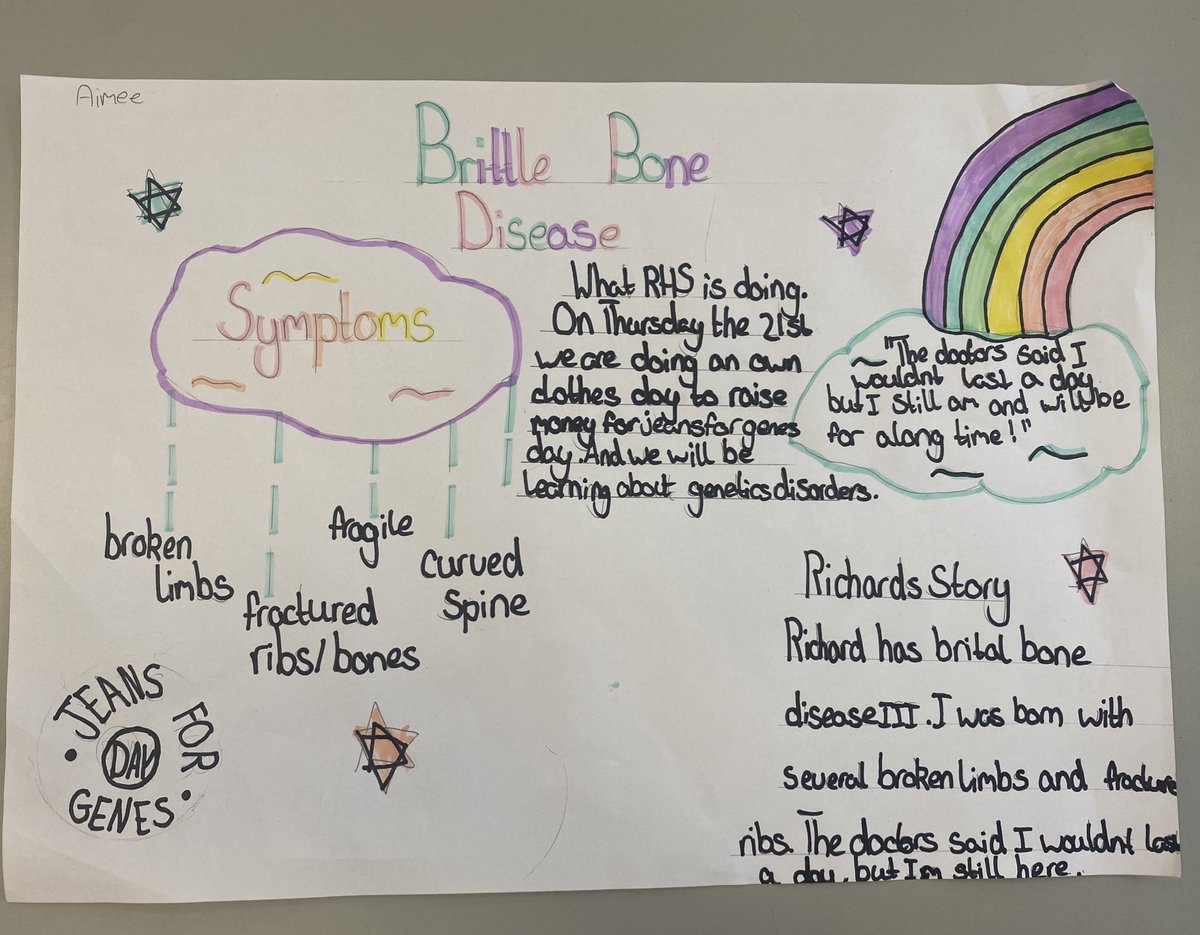 Aimee
Brittle Bone
Disease
Symptoms
broken
limbs
fractured
ribs/bones
fragile
curved
Spine
What RHS is doing.
On Thursday the 21st
we are doing an own
clothes day to raise
money for jeans for genes
day. And we will be
learning about genetics disorders.
"The doctors said I
wouldnt last a day
but I still am and will be
for along time!"
Richards Story
Richard has brital bone
disease III. I was born with
several broken limbs and fracture
ribs. The doctors said I wouldnt last
a day, but Im still here.
JEANS FOR
DAY
GENES